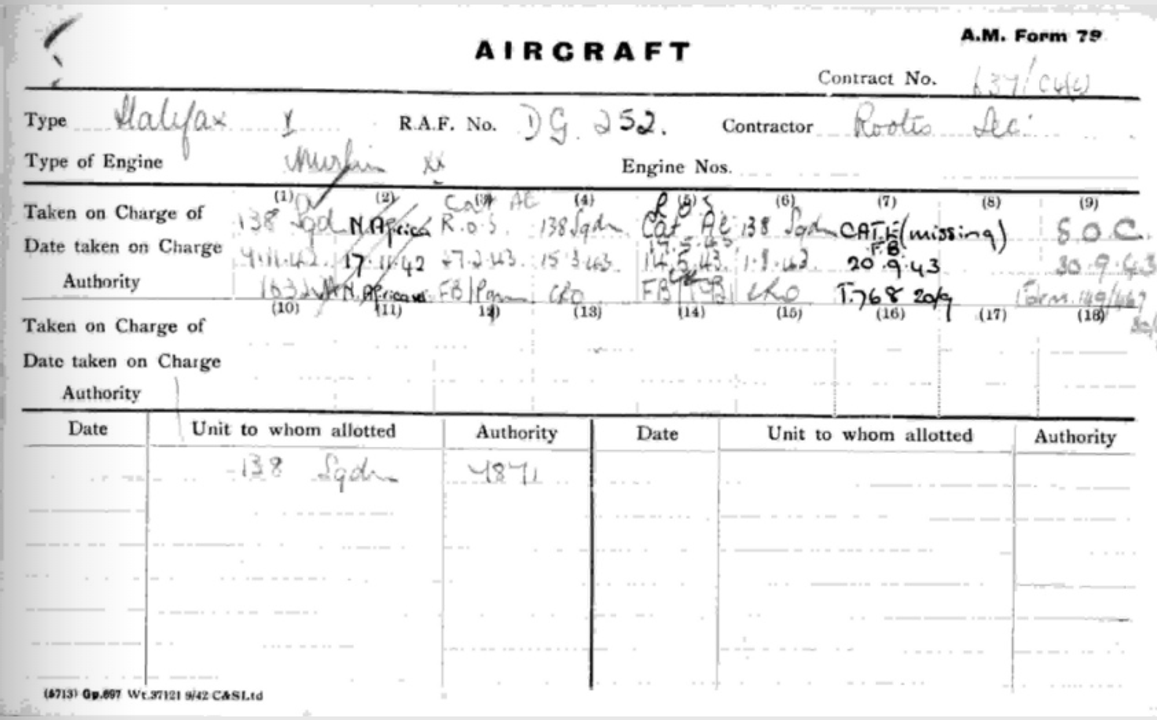 AIRCRAFT
A.M. Form 79
Contract No. 637/C4(c)
Type Halifax R.A.F. No. DG 252. Contractor Rootes Sec:
Type of Engine Merlin XX Engine Nos.
(1) (2) (3) (4) (5) (6) (7) (8) (9)
Cat AC R.O.S
Taken on Charge of 138 Sqdn N. Africa R.O.S. 138 Sqdn Cat AC 138 Sqdn CAT.E (missing) S.O.C.
F.B.
Date taken on Charge 4.11.42. 17.11.42 27.2.43. 15.3.43. 14.5.43. 20.9.43 30.9.43
Authority N. Africa FB CRO FB CRO T.768 20/9
(10) (11) 12) (13) (14) (15) (16) (17) (18)
Taken on Charge of
Date taken on Charge
Authority
Date Unit to whom allotted Authority Date Unit to whom allotted Authority
138 Sqdn 4871
(6713) Gp.697 Wt.37121 9/42 C&SLtd